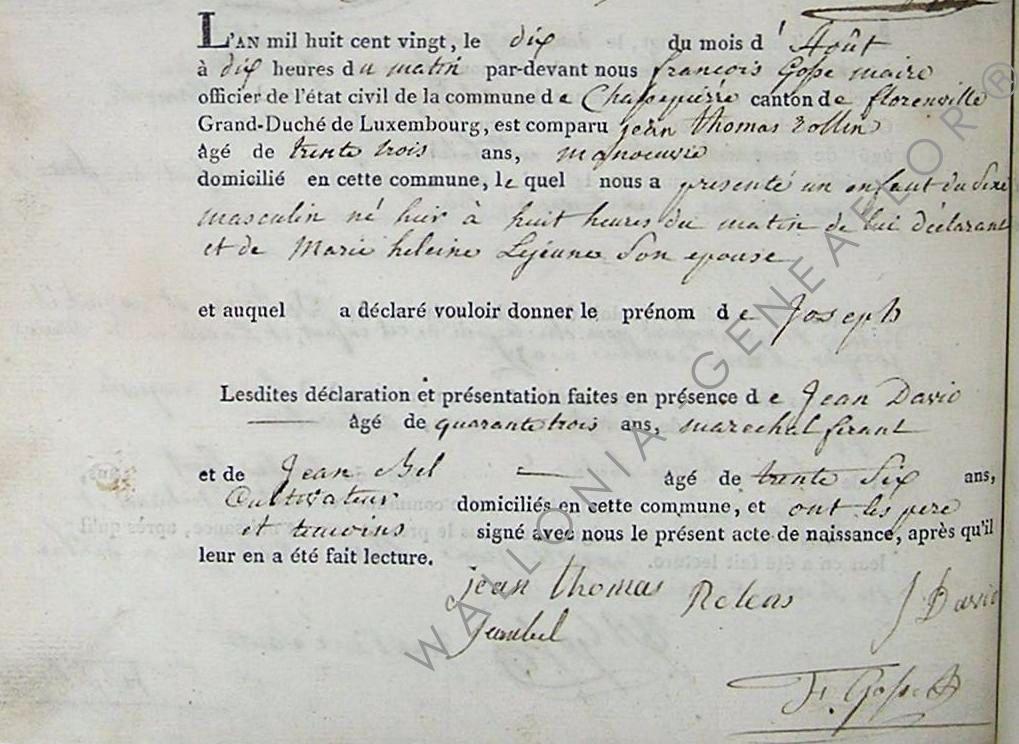 L'AN mil huit cent vingt, le dix du mois d'Août
à dix heures du matin par-devant nous françois Gofse maire
officier de l'état civil de la commune de Chassepierre canton de florenville
Grand-Duché de Luxembourg, est comparu jean thomas rollin
âgé de trente trois ans, manoeuvre
domicilié en cette commune, le quel nous a presenté un enfant du sexe
masculin né hier à huit heures du matin de lui déclarant
et de Marie heleine Lejeune son epouse
et auquel a déclaré vouloir donner le prénom de Joseph
Lesdites déclaration et présentation faites en présence de Jean David
âgé de quarante trois ans, marechal ferant
et de Jean Bel âgé de trente six ans,
Cultivateur domiciliés en cette commune, et ont les pere
et temoins signé avec nous le présent acte de naissance, après qu'il
leur en a été fait lecture.
jean thomas J David
Jean bel
F. Gofse
WALLONIA GENEAFLOR®